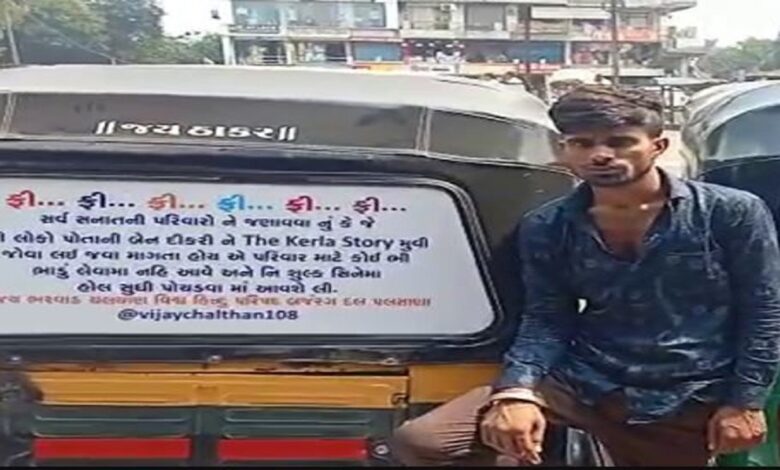 ॥જય ઠાકર॥
ફ્રી... ફ્રી... ફ્રી... ફ્રી... ફ્રી... ફ્રી...
સર્વ સનાતની પરિવારો ને જણાવવા નું કે જે
લોકો પોતાની બેન દીકરી ને The Kerla Story મુવી
જોવા લઈ જવા માગતા હોય એ પરિવાર માટે કોઈ ભી
ભાડું લેવામા નહિ આવે અને નિ શુલ્ક સિનેમા
હોલ સુધી પોચડવા માં આવશે લી-
ભરવાડ ચલથાણ વિશ્વ હિન્દુ પરિષદ બજરંગ દલ પલસાણા
@vijaychalthan108